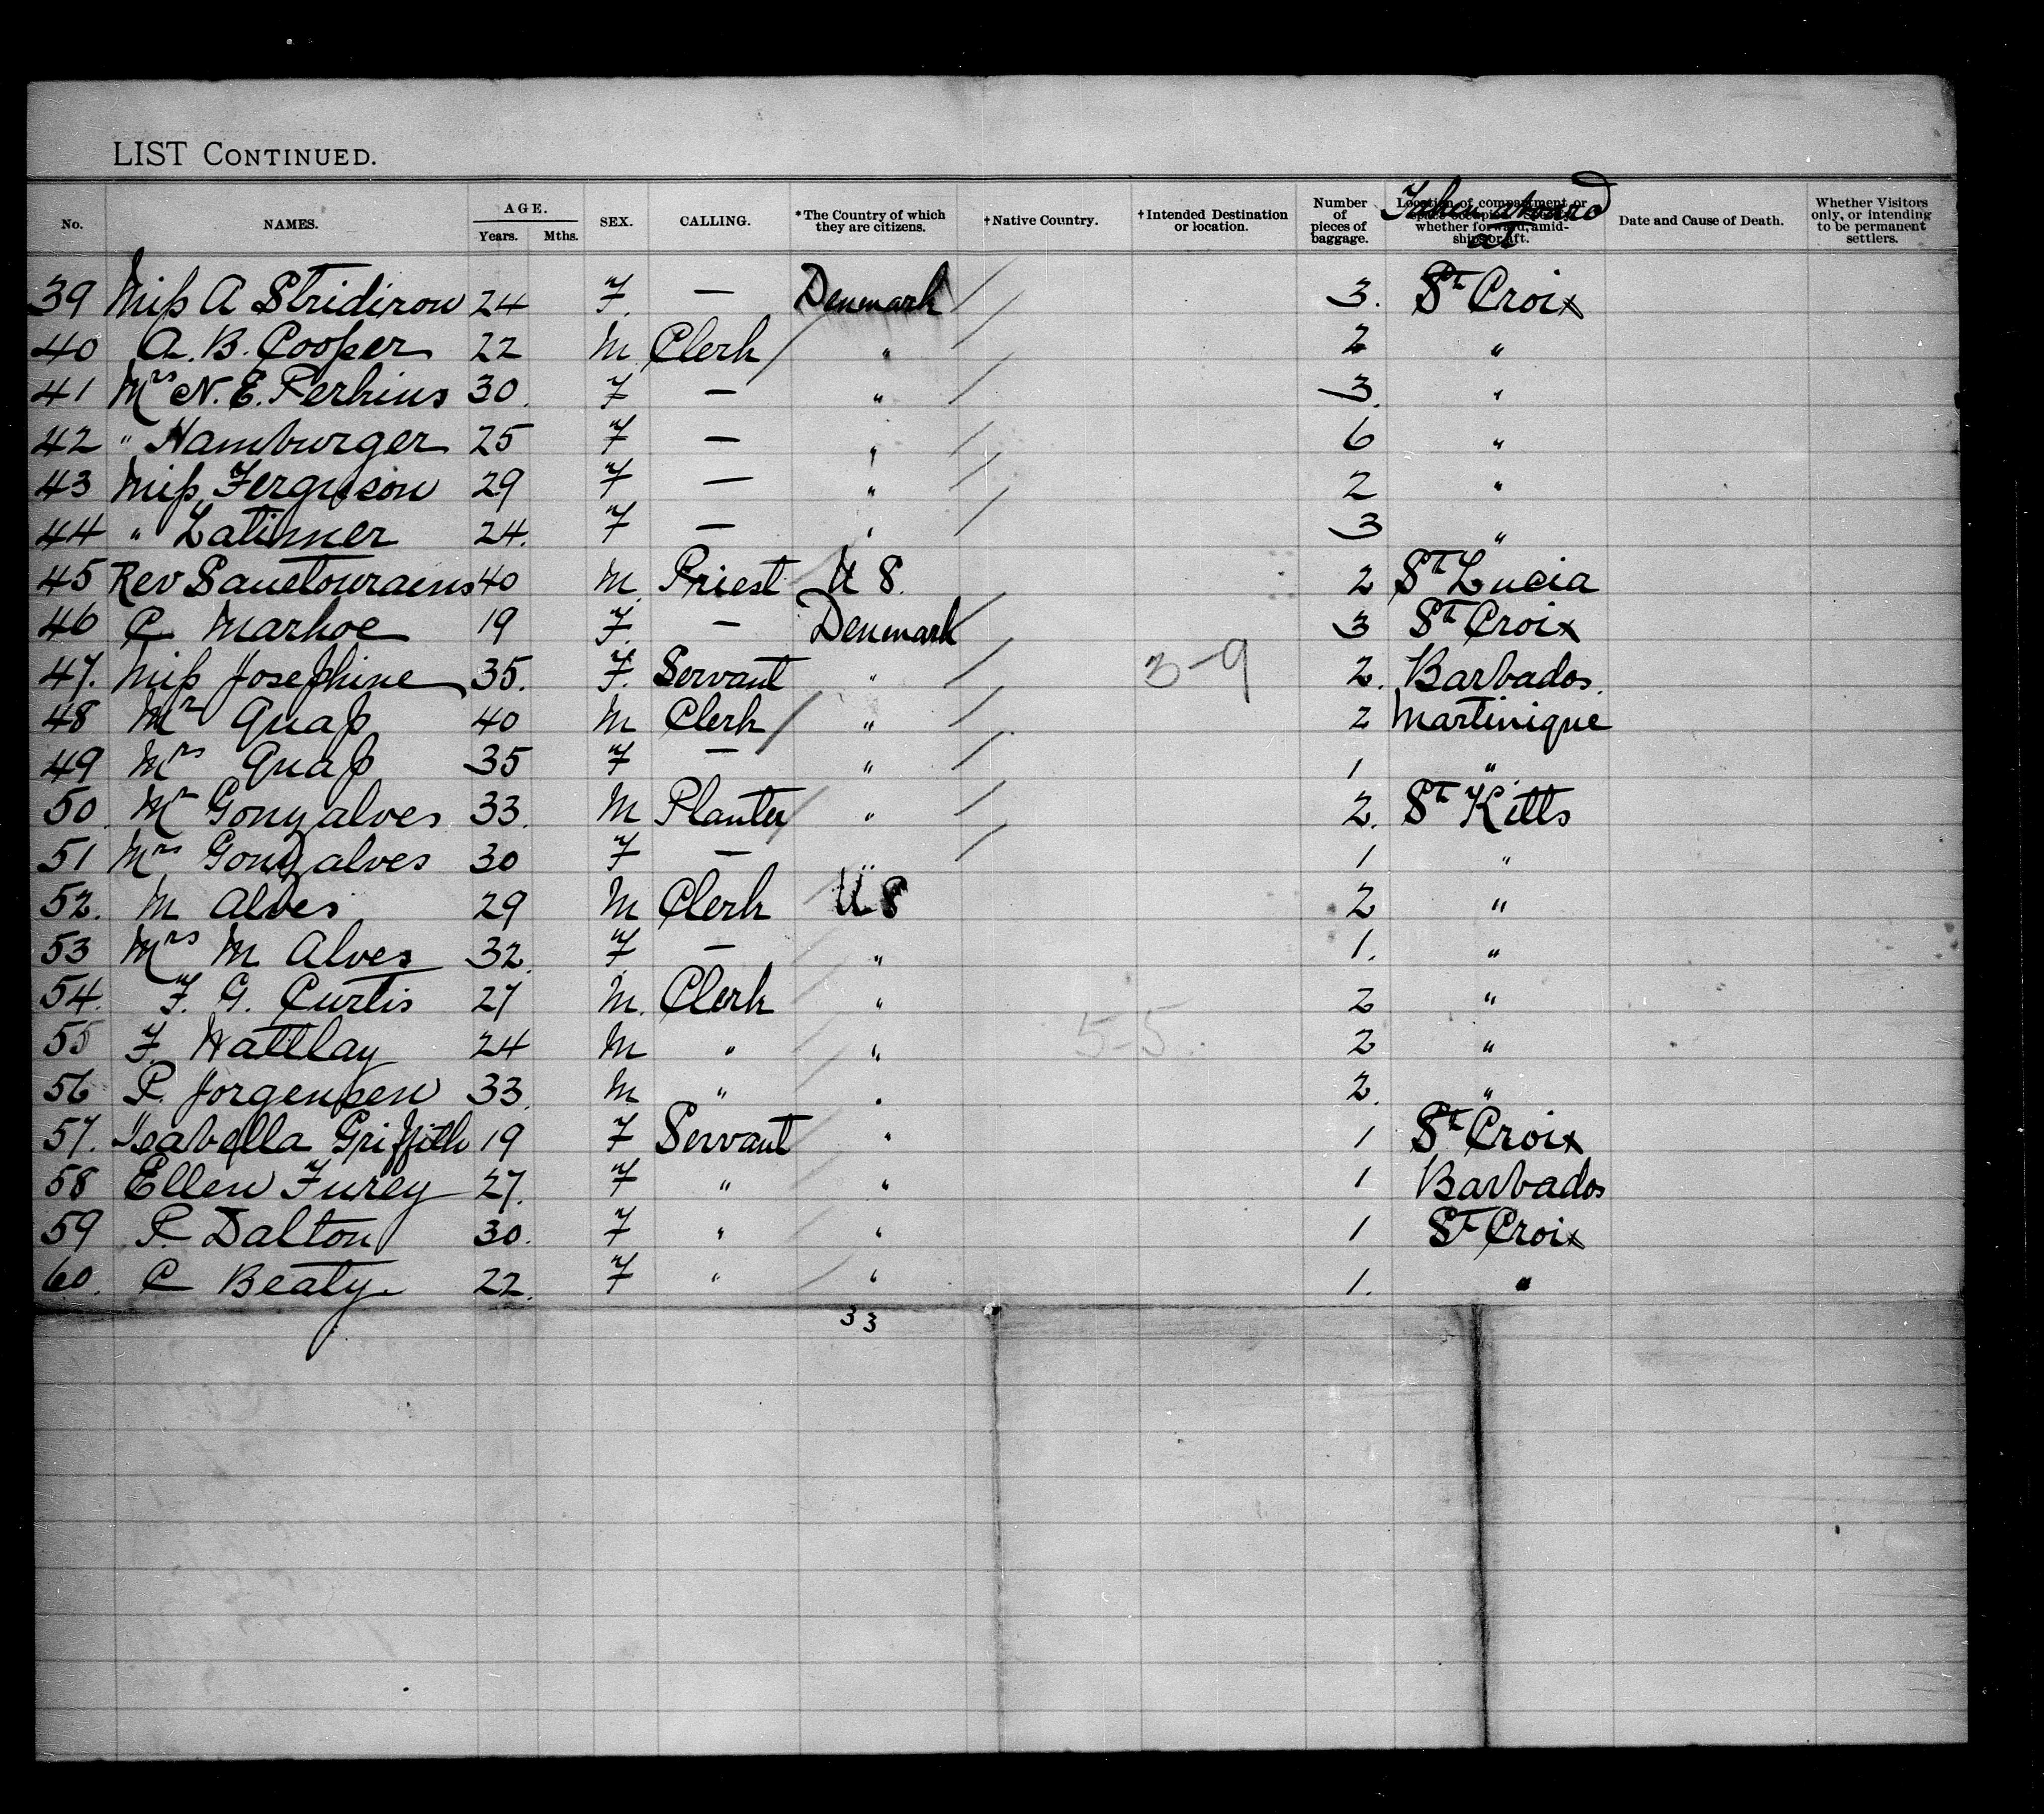 LIST CONTINUED.
No. NAMES. AGE. Years. Mths. SEX. CALLING. *The Country of which they are citizens. †Native Country. †Intended Destination or location. Number of pieces of baggage. Location of compartment or space occupied whether forward, amidships or aft. Date and Cause of Death. Whether Visitors only, or intending to be permanent settlers.
Taken aboard at
39 Miss A Stridiron 24 F. — Denmark 3. St Croix
40 A. B. Cooper 22 M Clerk " 2 "
41 Mrs N. E. Perkins 30. F — " 3. "
42 " Hamburger 25 F — " 6 "
43 Miss Ferguson 29 F — " 2 "
44 " Latimer 24. F — " 3 "
45 Rev 40 M. Priest U S. 2 St Lucia
46 C. Markoe 19 F. — Denmark 3 St Croix
47. Miss Josephine 35. F. Servant " 3-9 2. Barbados.
48 Mr Quass 40 M Clerk " 2 Martinique
49 Mrs Quass 35 F — " 1 "
50. Mr Gonzalves 33. M Planter " 2. St Kitts
51 Mrs Gonzalves 30 F — " 1 "
52. M Alves 29 M Clerk U S 2 "
53 Mrs M Alves 32. F — " 1. "
54. F. G. Curtis 27 M. Clerk " 2 "
55 F. Hattlay 24 M " " 5-5. 2 "
56 P. Jorgensen 33. M " " 2. "
57. Isabella Griffith 19 F Servant " 1 St Croix
58 Ellen Furey 27. F " " 1 Barbados
59 P. Dalton 30. F " " 1 St Croix
60. C Beaty 22. F " " 1. "
33